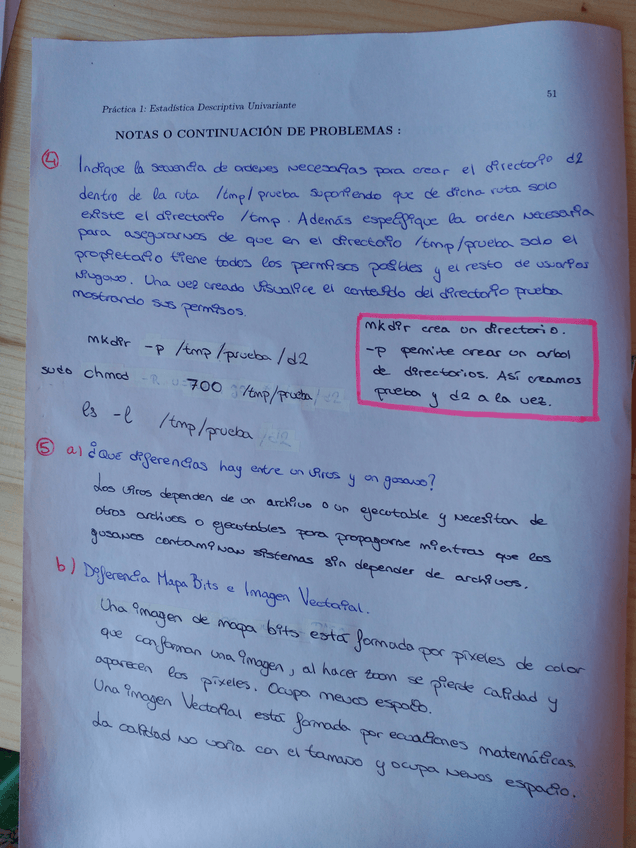 51
Práctica 1: Estadística Descriptiva Univariante
NOTAS O CONTINUACIÓN DE PROBLEMAS :
4 Indique la secuencia de ordenes necesarias para crear el directorio d2
dentro de la ruta /tmp/prueba suponiendo que de dicha ruta solo
existe el directorio /tmp. Además especifique la orden necesaria
para asegurarnos de que en el directorio /tmp/prueba solo el
propietario tiene todos los permisos posibles y el resto de usuarios
ninguno. Una vez creado visualice el contenido del directorio prueba
mostrando sus permisos.
mkdir -p /tmp/prueba/d2
sudo chmod 700 /tmp/prueba
ls -l /tmp/prueba
mkdir crea un directorio.
-p permite crear un arbol
de directorios. Así creamos
prueba y d2 a la vez.
5 a) ¿Qué diferencias hay entre un virus y un gusano?
Los virus dependen de un archivo o un ejecutable y necesitan de
otros archivos o ejecutables para propagarse mientras que los
gusanos contaminan sistemas sin depender de archivos.
b) Diferencia Mapa Bits e Imagen Vectorial.
Una imagen de mapa bits está formada por píxeles de color
que conforman una imagen, al hacer zoom se pierde calidad y
aparecen los píxeles. Ocupa menos espacio.
Una imagen Vectorial está formada por ecuaciones matemáticas.
La calidad no varia con el tamano y ocupa menos espacio.